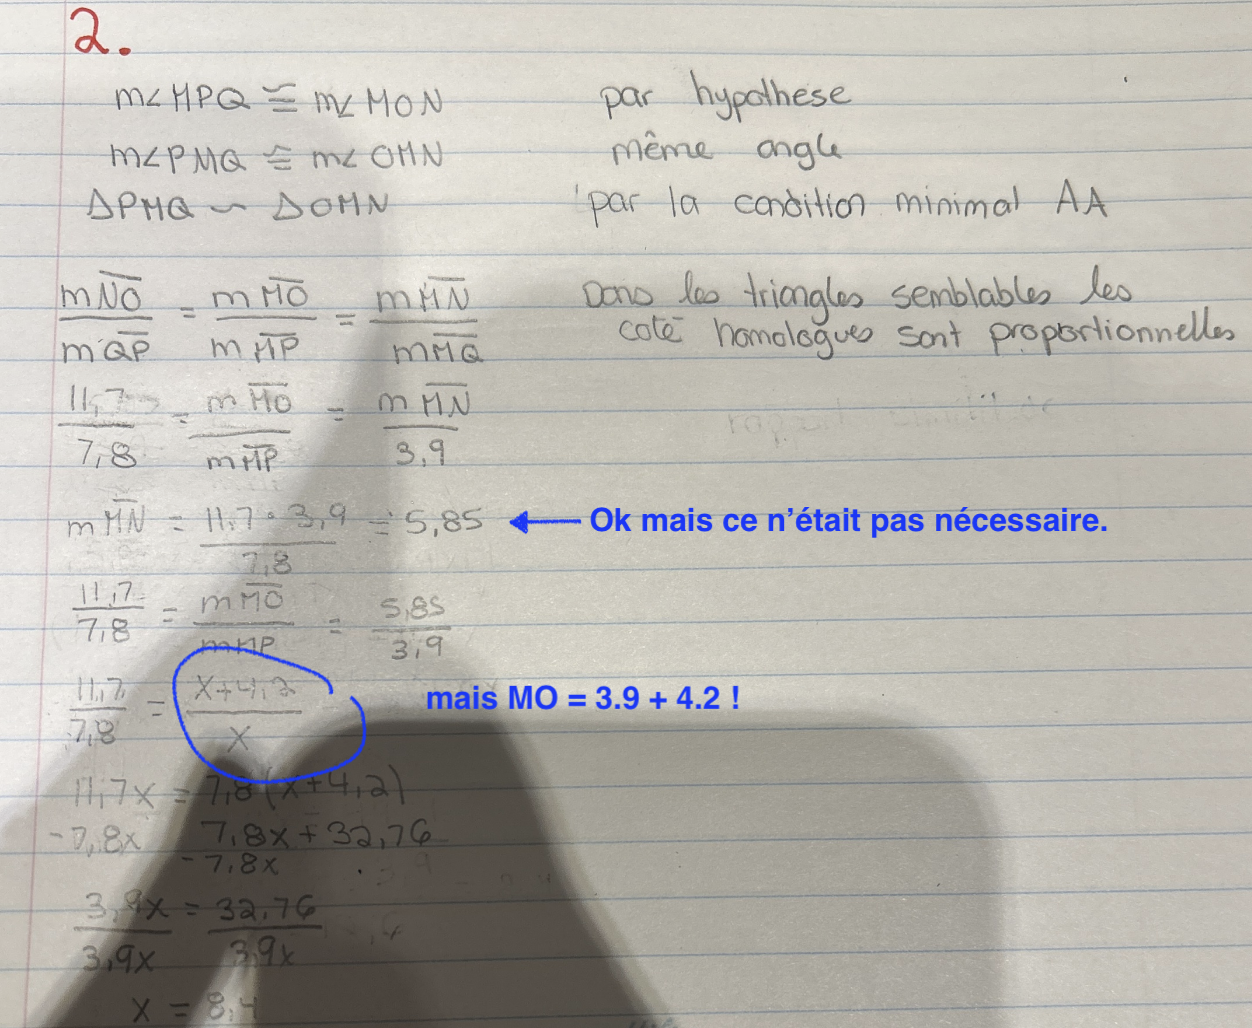 2.
m∠MPQ ≅ m∠MON par hypothese
m∠PMQ ≅ m∠OMN même angle
ΔPMQ ~ ΔOMN par la condition minimal AA
mNO/mQP = mMO/mMP = mMN/mMQ Dans les triangles semblables les
coté homologues sont proportionnelles
11,7/7,8 = mMO/mMP = mMN/3,9
mMN = 11.7 · 3,9/7,8 = 5,85 Ok mais ce n'était pas nécessaire.
11,7/7,8 = mMO/mMP = 5,85/3,9
11,7/7,8 = x+4,2/x mais MO = 3.9 + 4.2 !
11,7x = 7,8(x+4,2)
-7,8x 7,8x + 32,76
-7,8x
3,9x/3,9x = 32,76/3,9x
x = 8,4